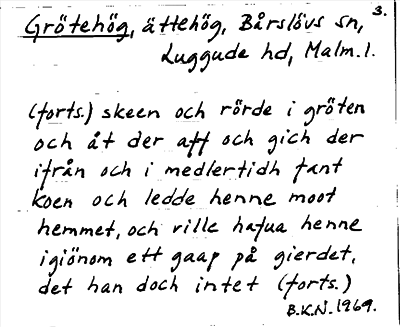 3.
Grötehög, ättehög, Bårslövs sn,
Luggude hd, Malm. l.
(forts.) skeen och rörde i gröten
och åt der aff och gich der
ifrån och i medlertidh fant
koen och ledde henne moot
hemmet, och ville hafua henne
igiönom ett gaap på gierdet,
det han doch intet (forts.)
B.K.N. 1969.